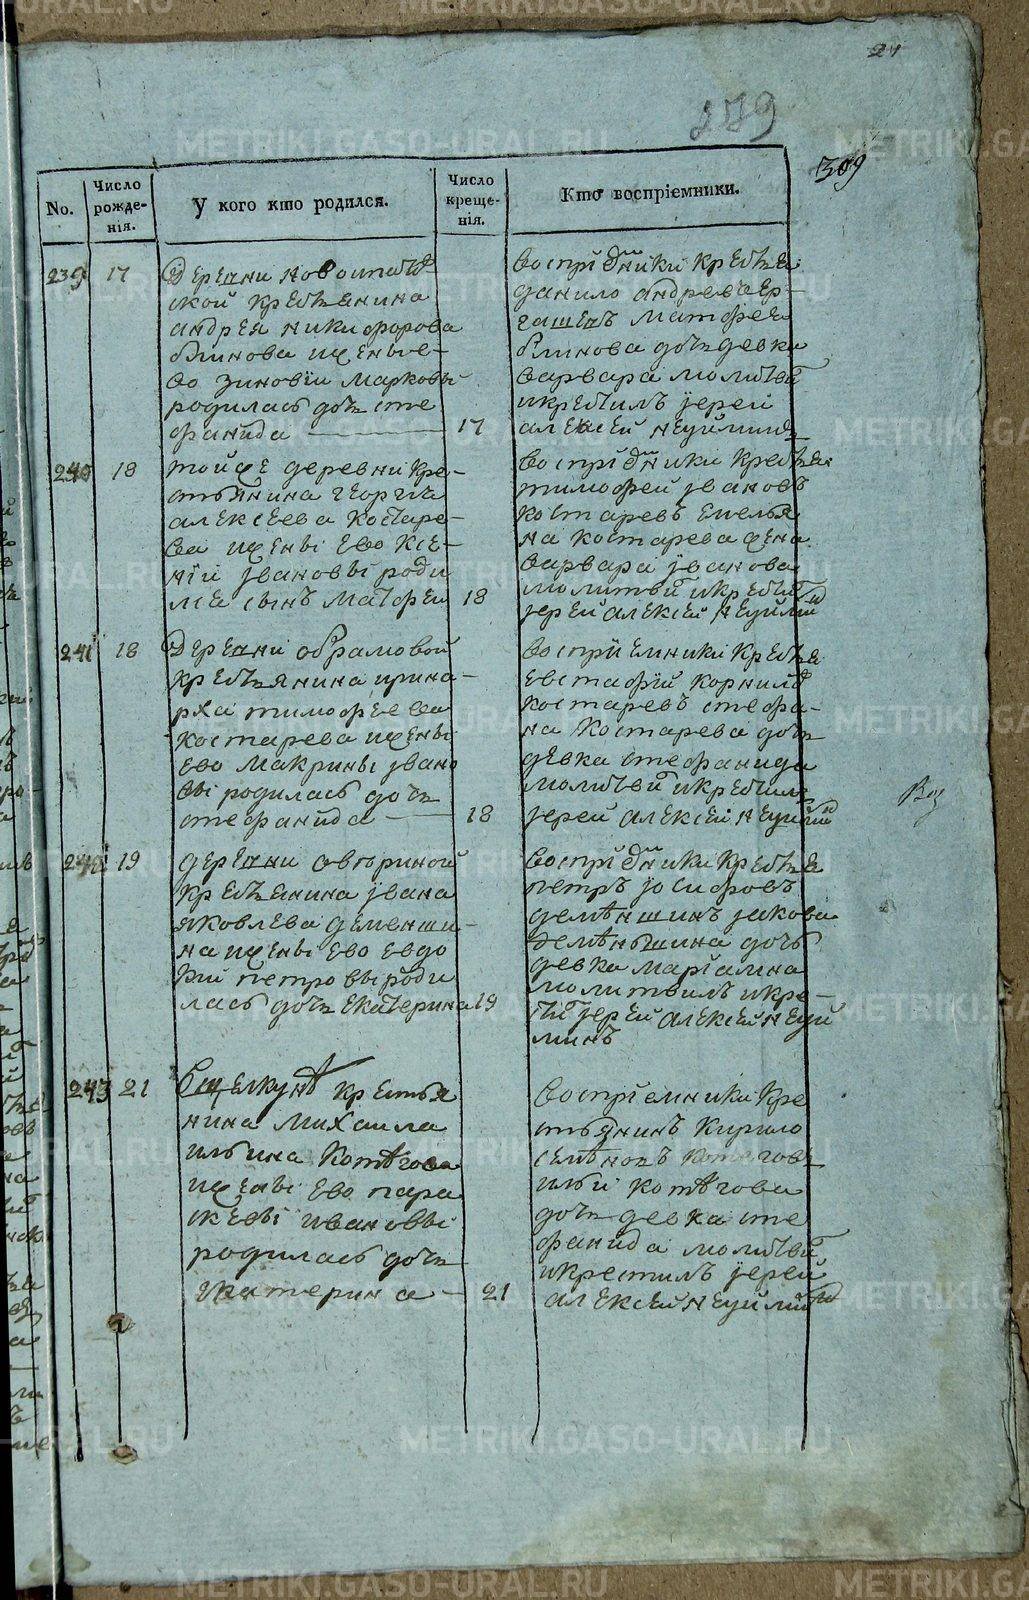 279
309
No.
Число рожде-нія.
У кого кто родился.
Число креще-нія.
Кто воспріемники.
239 17 Деревни новоипатов
ской крестьянина
андрея никифорова
блинова и жены е-
во зиновіи марковы
родилась дочь сте
фанида 17
воспріемники крестья
данило андреевъ ер-
гашевъ матфея
блинова дочь девка
варвара молитв
и крестилъ іерей
алексей неуйминъ
240 18 той же деревни кре-
стьянина георгіа
алексеева костаре-
ва и жены ево ксе-
ніи івановы роди
лся сынъ матфей 18
воспріемники крестья
тимофей івановъ
костаревъ емелья
на костарева жена
варвара іванова
молитв и крест
іерей алексей неуймин
241 18 Деревни обрамовой
крестьянина ирина-
рха тимофеева
костарева и жены
ево макрины івано
вы родилась дочь
стефанида 18
воспріемники крестья
евстафій корнило
костаревъ стефа-
на костарева дочь
девка стефанида
молитв и крестилъ
іерей алексей неуймин
242 19 деревни авериной
крестьянина івана
яковлева деменши-
на и жены ево евдо
кіи петровы роди
лась дочь екатерина 19
воспріемники крестья
петръ іосифовъ
деменшинъ іакова
деменьшина дочь
девка маріамна
молитвилъ и кре-
сти іерей алексей неуй
минъ
243 21 Села щелкун крестья
нина михаила
ильина котегова
и жены ево пара
скевы ивановы
родилась дочь
екатерина 21
воспріемники кре
стьянинъ кирило
семеновъ котеговъ
ильи котегова
дочь девка сте
фанида молитв
и крестилъ іерей
алексей неуймин
METRIKI.GASO-URAL.RU